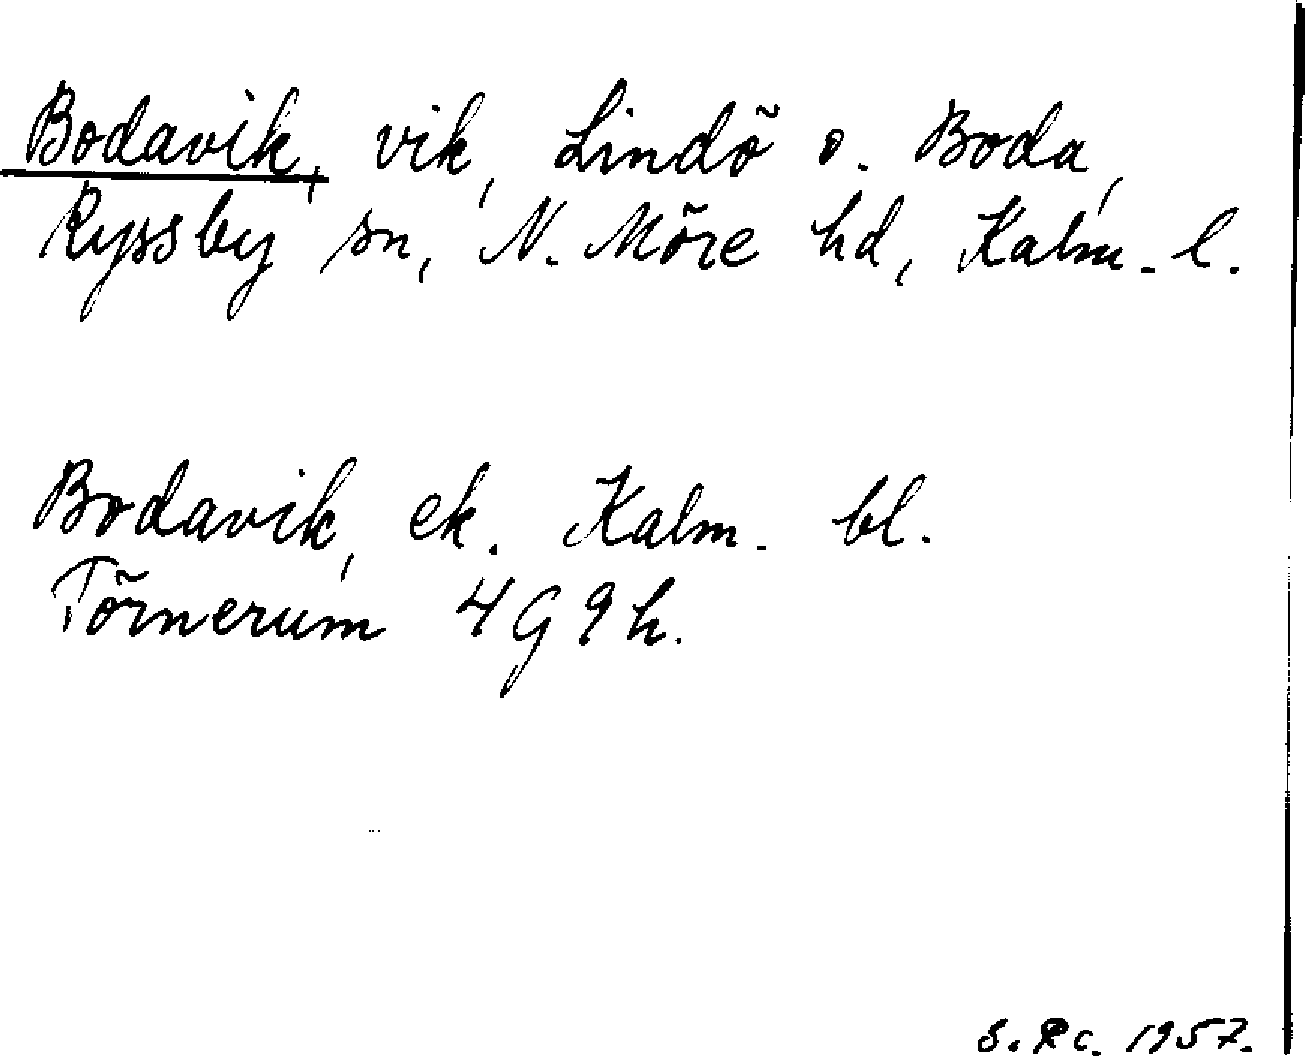 Bodavik, vik, Lindö o. Boda,
Ryssby sn, N. Möre hd, Kalm. l.
Bodavik, ek. Kalm. bl.
Törnerum 4G9h.
S. Rc. 1957.